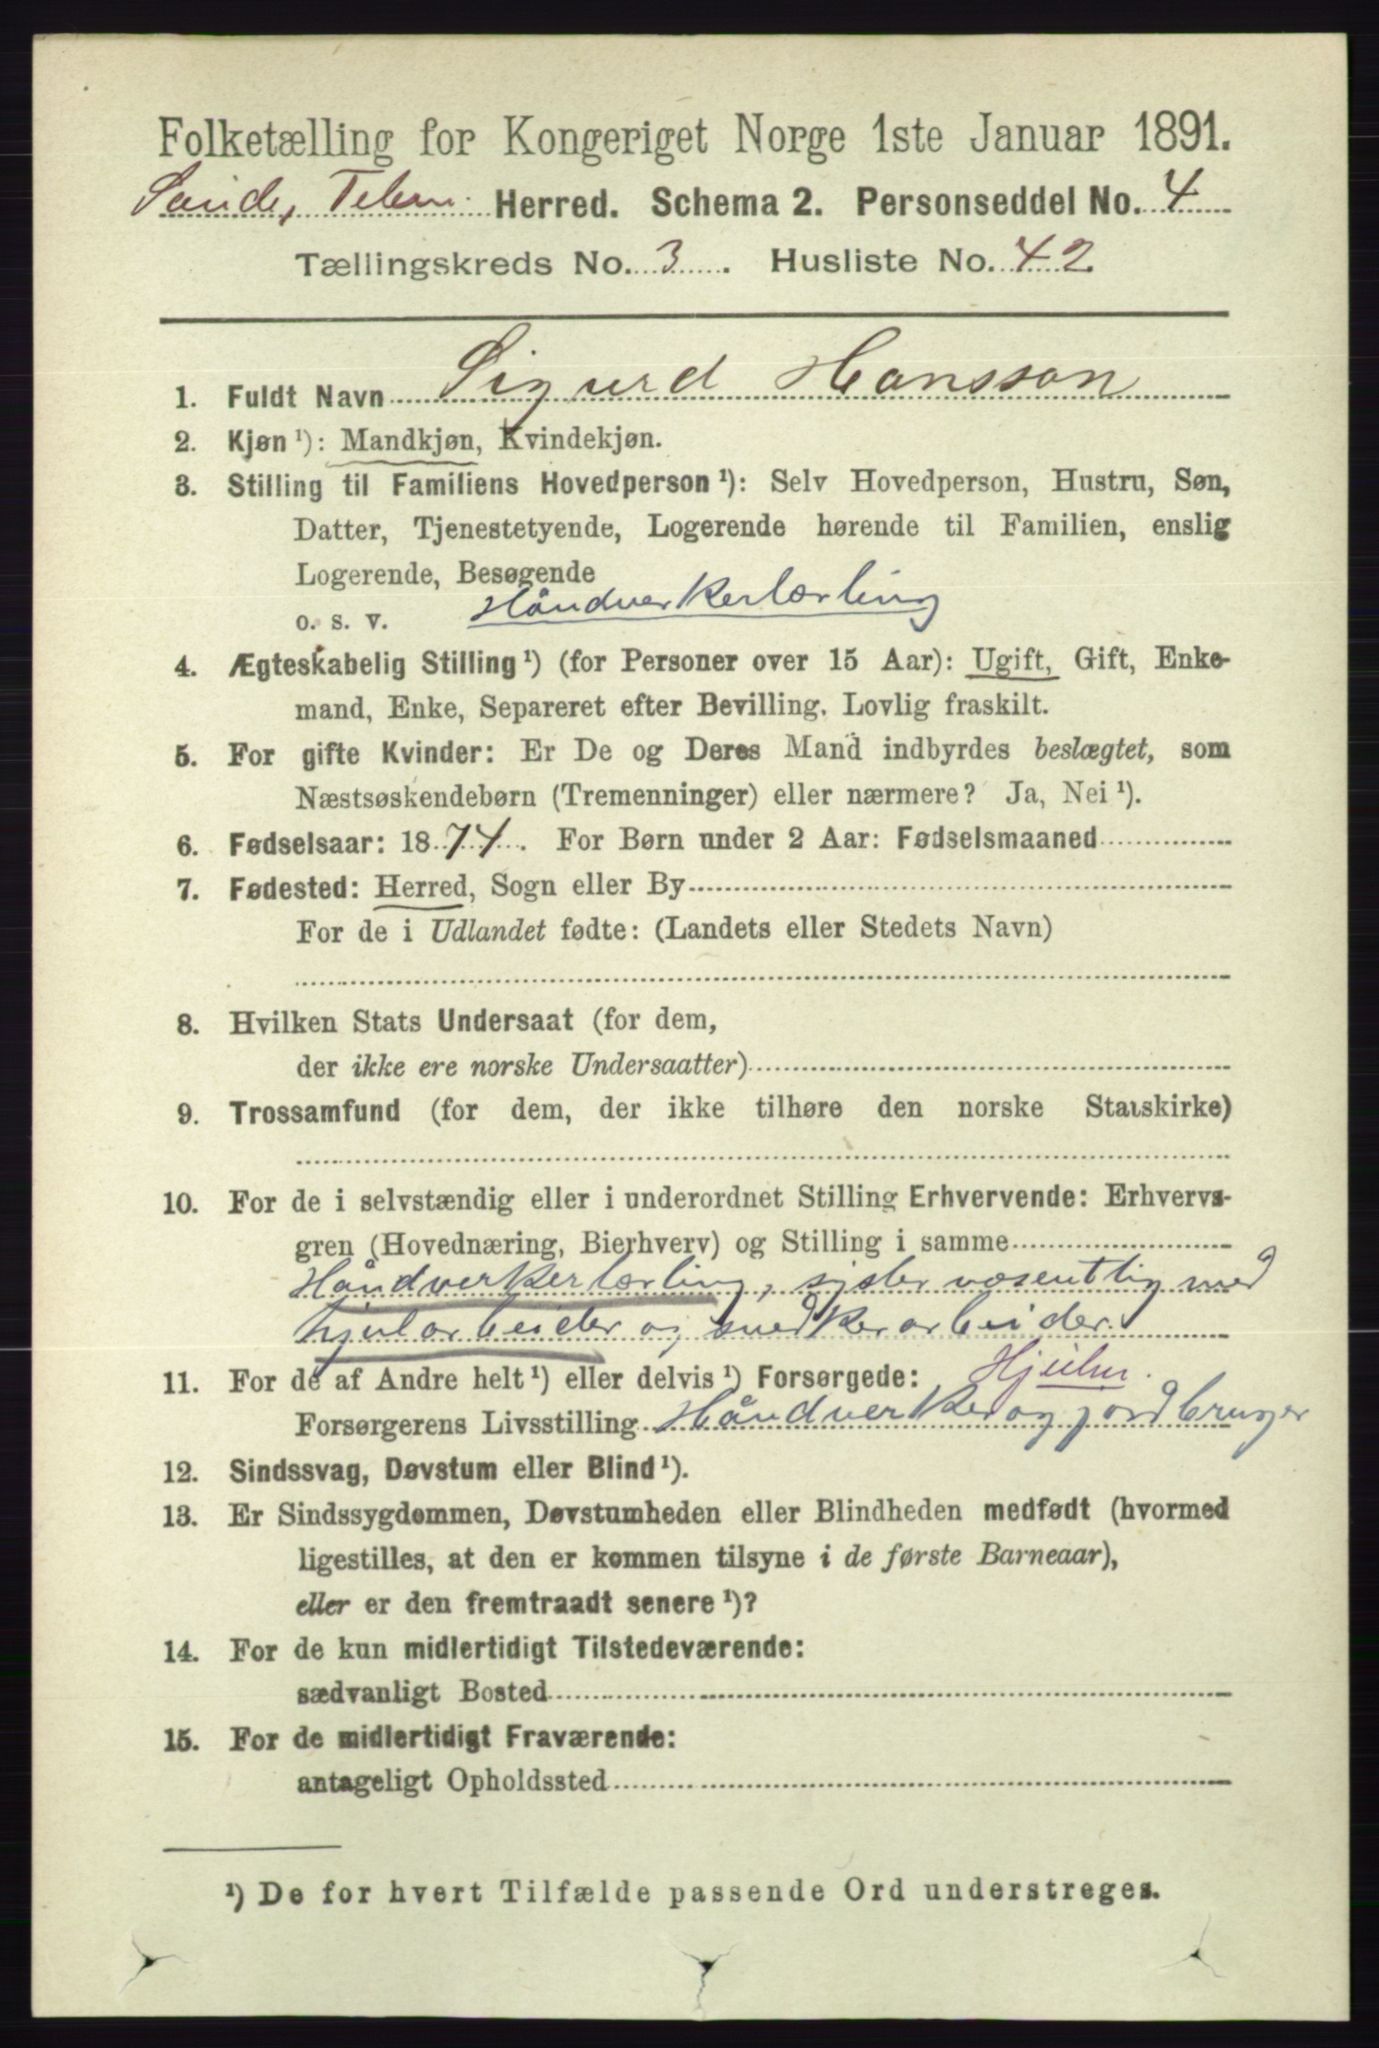 Folketælling for Kongeriget Norge 1ste Januar 1891.
Sande, Telem. Herred. Schema 2. Personseddel No. 4
Tællingskreds No. 3. Husliste No. 42
1. Fuldt Navn Sigurd Hansson
2. Kjøn ¹): Mandkjøn, Kvindekjøn.
3. Stilling til Familiens Hovedperson ¹): Selv Hovedperson, Hustru, Søn,
Datter, Tjenestetyende, Logerende hørende til Familien, enslig
Logerende, Besøgende
o. s. v. Håndverkerlærling
4. Ægteskabelig Stilling ¹) (for Personer over 15 Aar): Ugift, Gift, Enke-
mand, Enke, Separeret efter Bevilling. Lovlig fraskilt.
5. For gifte Kvinder: Er De og Deres Mand indbyrdes beslægtet, som
Næstsøskendebørn (Tremenninger) eller nærmere? Ja, Nei ¹).
6. Fødselsaar: 1874. For Børn under 2 Aar: Fødselsmaaned
7. Fødested: Herred, Sogn eller By
For de i Udlandet fødte: (Landets eller Stedets Navn)
8. Hvilken Stats Undersaat (for dem,
der ikke ere norske Undersaatter)
9. Trossamfund (for dem, der ikke tilhøre den norske Statskirke)
10. For de i selvstændig eller i underordnet Stilling Erhvervende: Erhvervs-
gren (Hovednæring, Bierhverv) og Stilling i samme
Håndverkerlærling, sysler væsentlig med
hjularbeider og snedkerarbeider.
11. For de af Andre helt ¹) eller delvis ¹) Forsørgede:
Forsørgerens Livsstilling Håndverker og jordbruger
12. Sindssvag, Døvstum eller Blind ¹).
13. Er Sindssygdommen, Døvstumheden eller Blindheden medfødt (hvormed
ligestilles, at den er kommen tilsyne i de første Barneaar),
eller er den fremtraadt senere ¹)?
14. For de kun midlertidigt Tilstedeværende:
sædvanligt Bosted
15. For de midlertidigt Fraværende:
antageligt Opholdssted
¹) De for hvert Tilfælde passende Ord understreges.